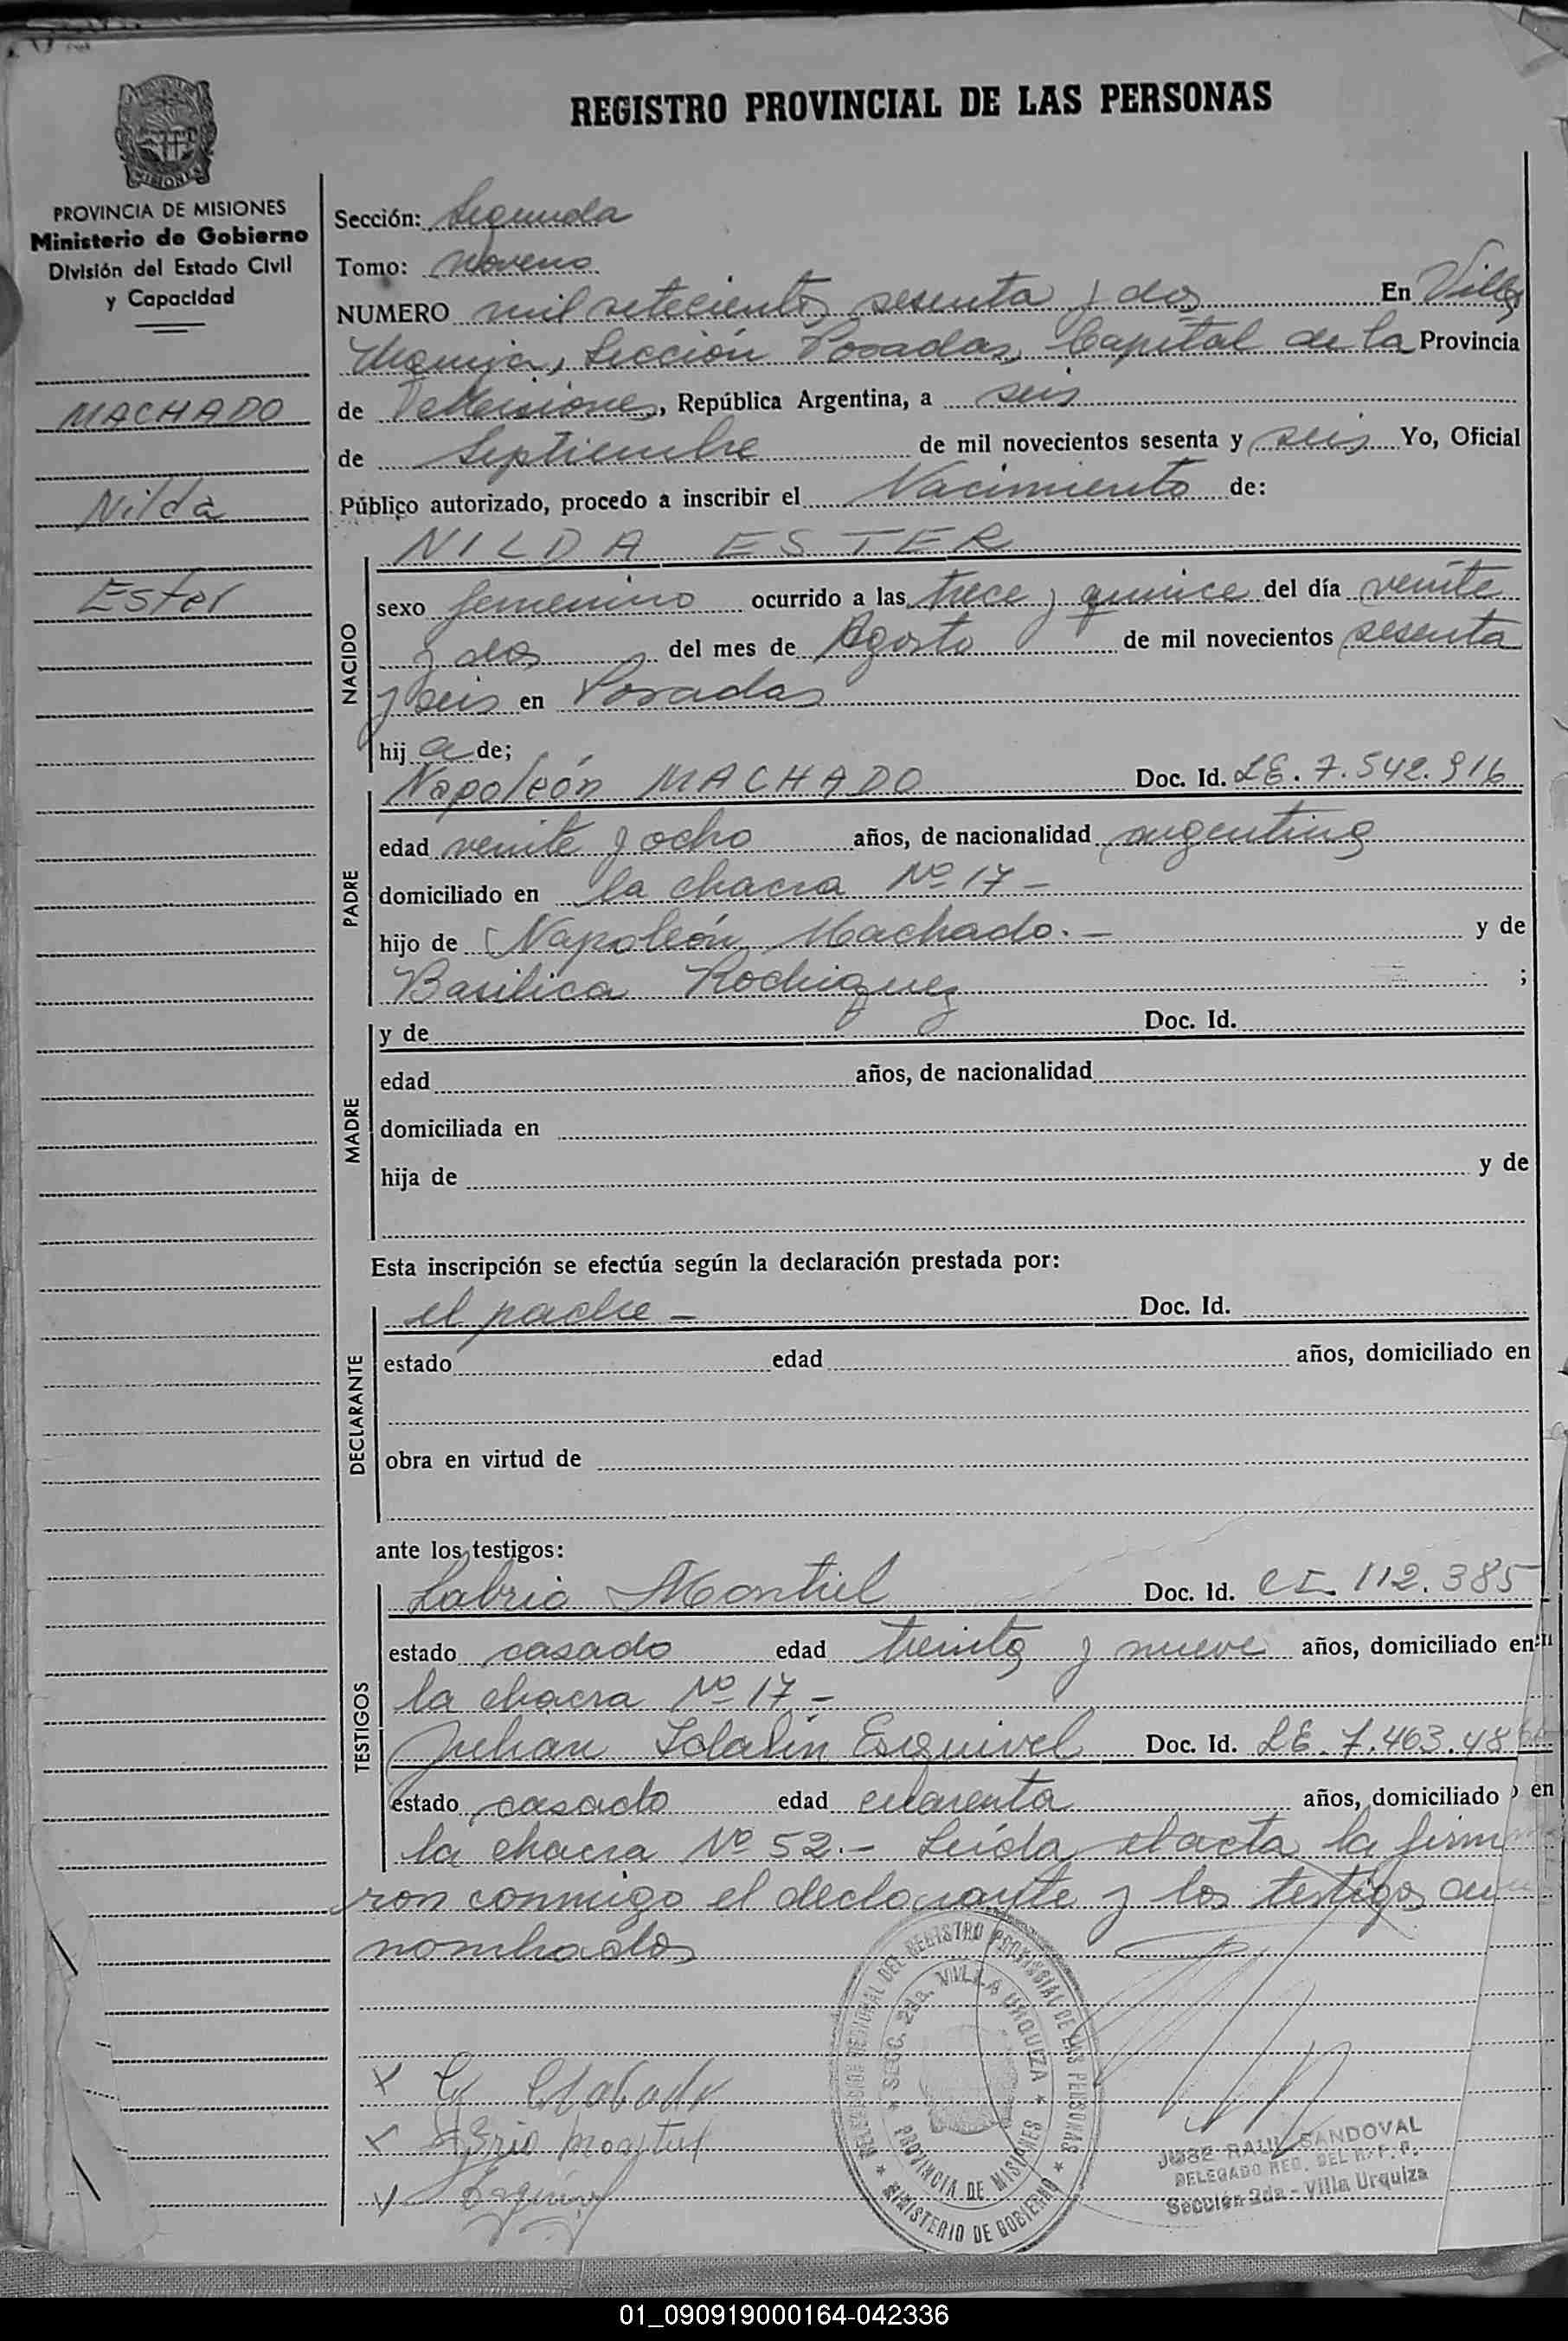 REGISTRO PROVINCIAL DE LAS PERSONAS
MISIONES
PROVINCIA DE MISIONES
Ministerio de Gobierno
División del Estado Civil
y Capacidad
MACHADO
Nilda
Ester
Sección: Segunda
Tomo: Noveno
NUMERO mil setecientos sesenta y dos En Villa
Urquiza, Sección Posadas, Capital de la Provincia
de Misiones, República Argentina, a seis
de Septiembre de mil novecientos sesenta y seis Yo, Oficial
Público autorizado, procedo a inscribir el Nacimiento de:
NILDA ESTER
NACIDO
sexo femenino ocurrido a las trece y quince del día veinte
y dos del mes de Agosto de mil novecientos sesenta
y seis en Posadas
hij a de;
Napoleón MACHADO Doc. Id. LE. 7.542.916
PADRE
edad veinte y ocho años, de nacionalidad argentina
domiciliado en la chacra Nº 17 -
hijo de Napoleón Machado. - y de
Basilica Rodriguez ;
MADRE
y de Doc. Id.
edad años, de nacionalidad
domiciliada en
hija de y de
Esta inscripción se efectúa según la declaración prestada por:
DECLARANTE
el padre - Doc. Id.
estado edad años, domiciliado en
obra en virtud de
ante los testigos:
TESTIGOS
Montiel Doc. Id. CI. 112.385
estado casado edad treinta y nueve años, domiciliado en
la chacra Nº 17 -
Julian Esquivel Doc. Id. LE. 7.463.48
estado casado edad cuarenta años, domiciliado en
la chacra Nº 52.- Leída el acta la firm
ron conmigo el declarante y los testigos
nombrados
DELEGACION REGIONAL DEL REGISTRO PROVINCIAL DE LAS PERSONAS
SECC. 2da. VILLA URQUIZA
PROVINCIA DE MISIONES
MINISTERIO DE GOBIERNO
JOSE RAUL SANDOVAL
DELEGADO REG. DEL R. P. P.
Sección 2da - Villa Urquiza
01_090919000164-042336